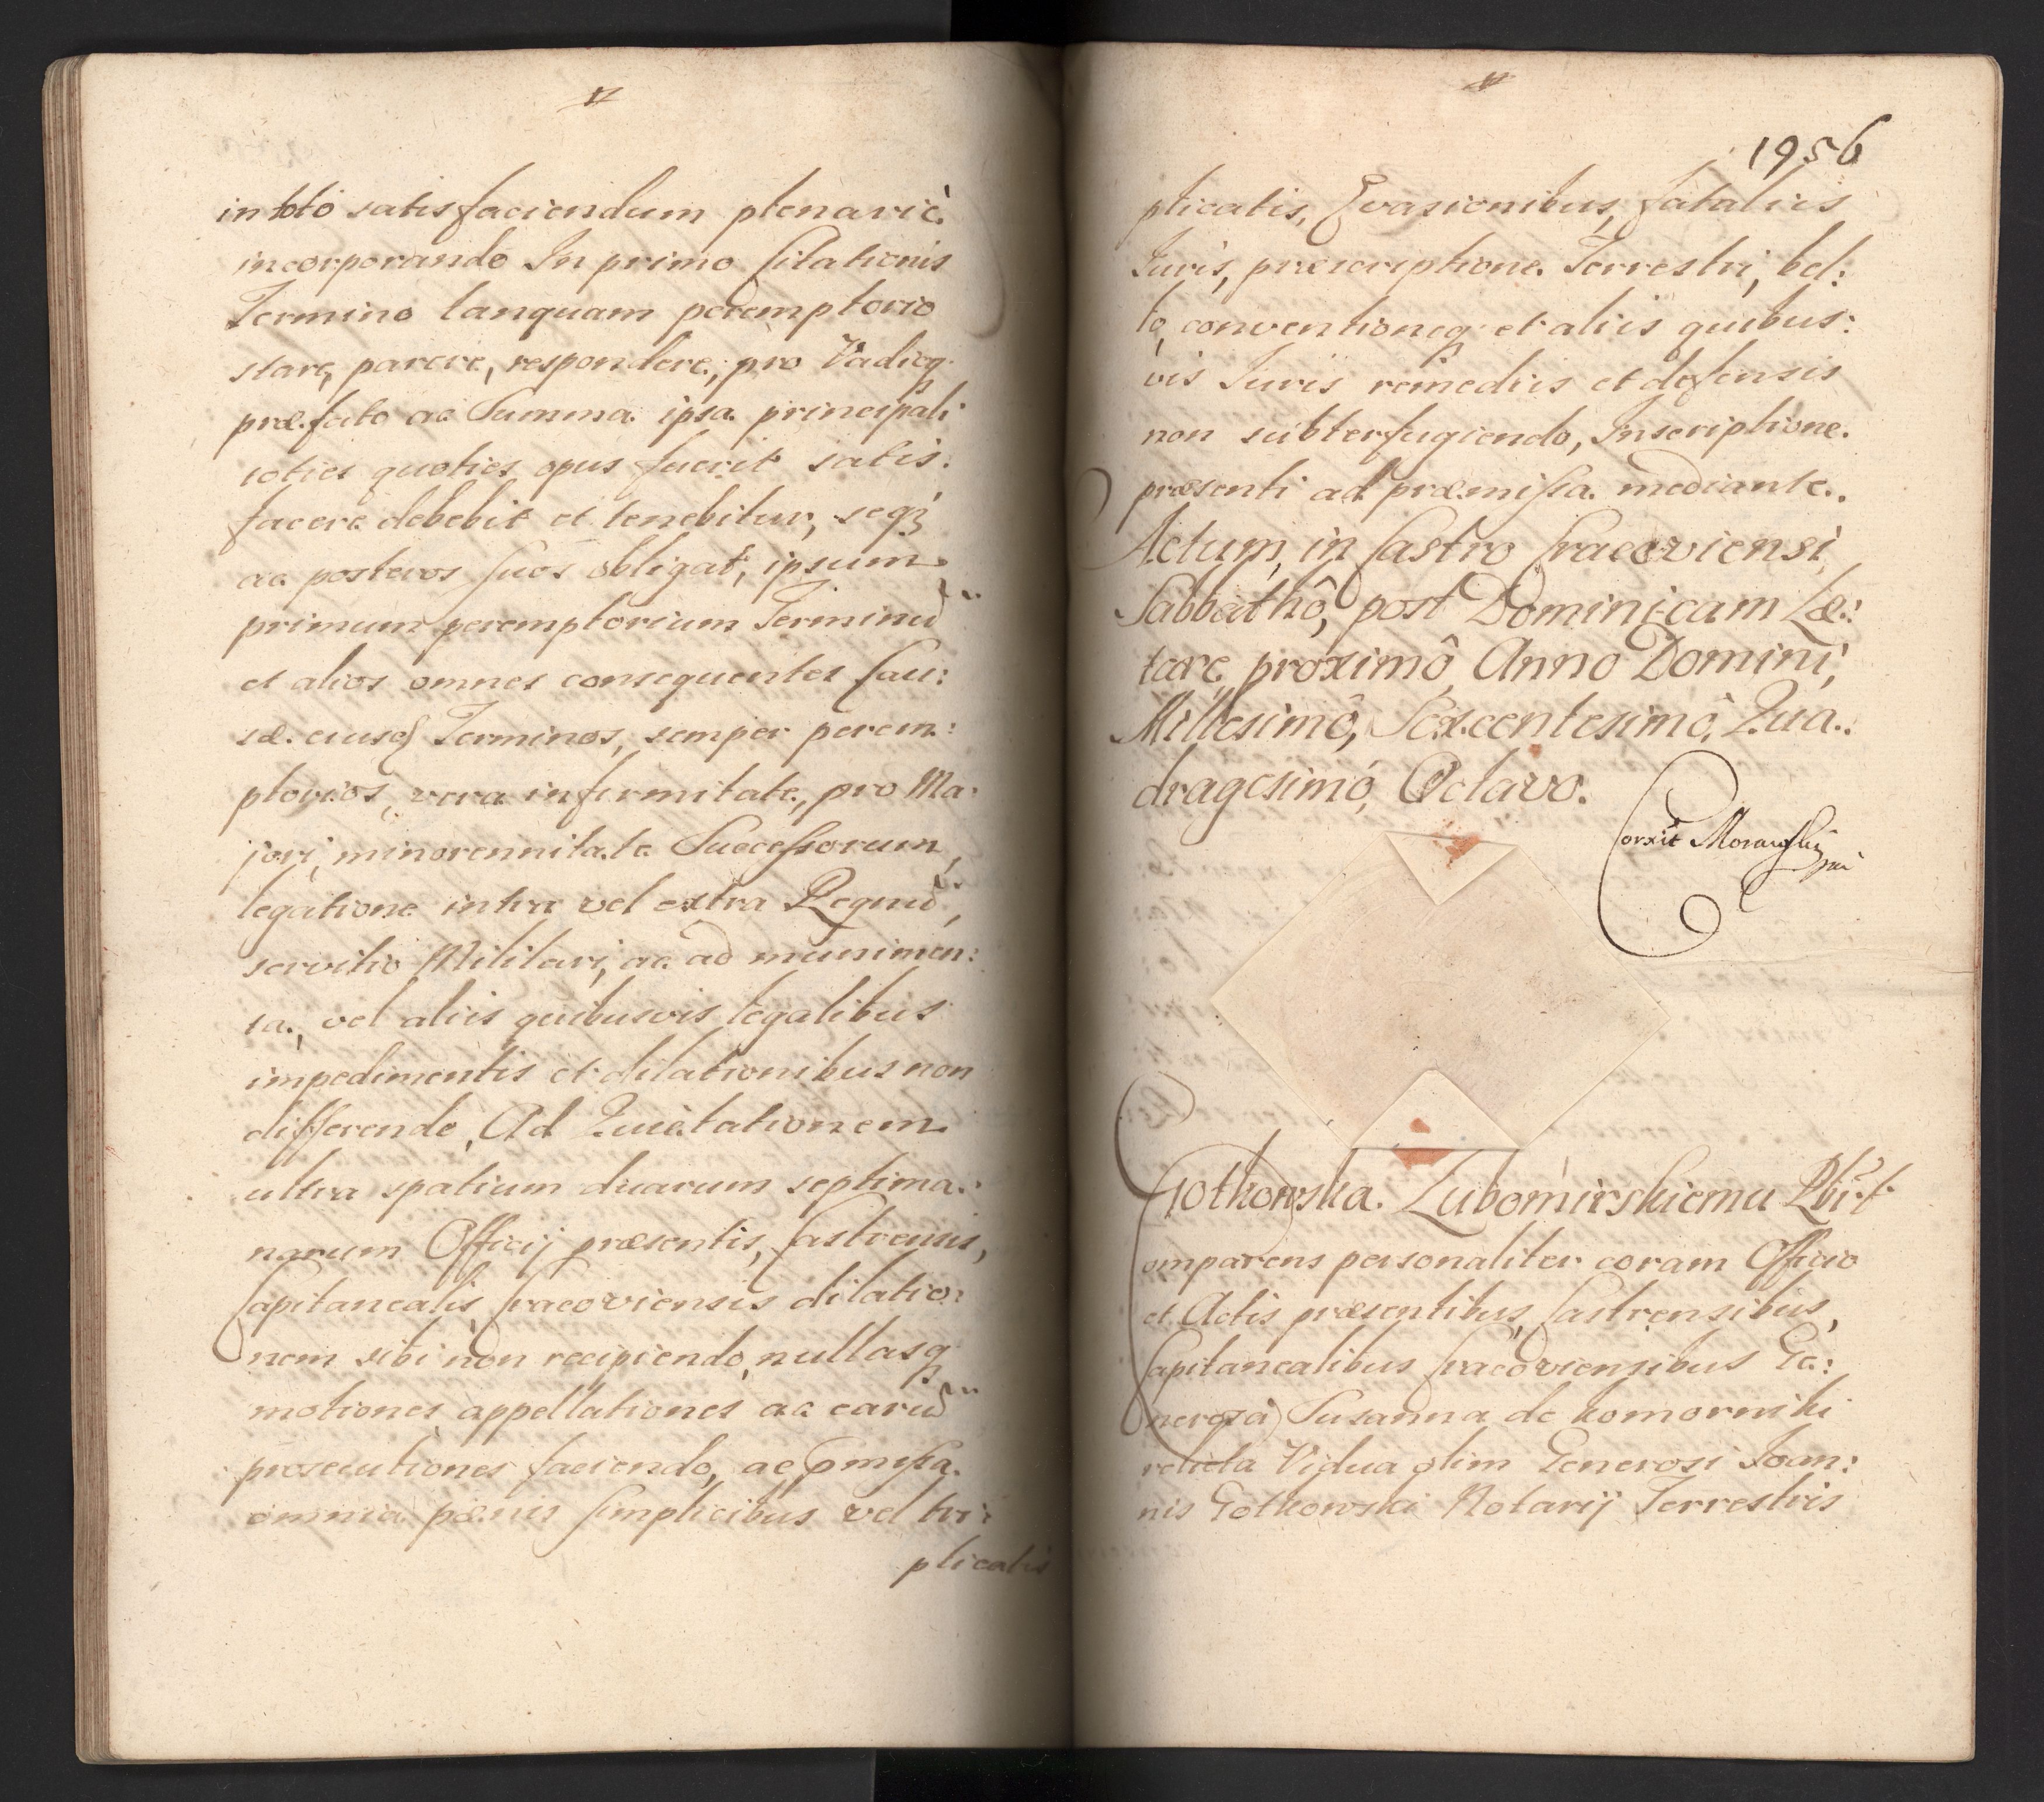 in toto satisfaciendum plenariè.
incorporando In primo Citationis
Termino tanquam peremptorio
stare, parere, respondere, pro Vadioq.
præfato ac Summa ipsa principali
toties quoties opus fuerit satis:
facere debebit et tenebitur, seqȝ
ac posteros suos obligat, ipsum
primum peremptorium Terminũ
et alios omnes consequentes Cau:
sæ eiusd Terminos, semper perem:
ptorios, vera infirmitate, pro Ma:
jori, minorennitate Successorum,
legatione intra vel extra Regnũ,
servitio Militari, ac ad munimen:
ta, vel aliis quibusvis legalibus
impedimentis et dilationibus non
differendo, Ad Quietationem
ultra spatium duarum septima:
narum Officij præsentis, Castrensis,
Capitanealis, Cracoviensis dilatio:
nem sibi non recipiendo, nullasq
motiones appellationes ac earũ
prosecutiones faciendo, ac pmissa
omnia pænis simplicibus vel tri:
plicatis
1956
plicatis, Evasionibus, fataliis
Iuris, præscriptione Terrestri, bel:
lo, conventioneq et aliis quibus:
vis Iuris remediis et defensis
non subterfugiendo, Inscriptione
præsenti ad præmissa mediante.
Actum, in Castro Cracoviensi,
Sabbathô, post Dominicam Læ:
tare, proximô, Anno Domini,
Millesimô, Sexcentesimô, Qua:
dragesimô, Octavo.
Corxit Morawski
mp
Gotkowska. Lubomirskiemu Rbit.
Comparens personaliter coram Officio
et Actis præsentibus, Castrensibus,
Capitanealibus Cracoviensibus Ge:
nerosa Susanna de Komorniki
relicta Vidua olim Generosi Ioan:
nis Gotkowski Notarij Terrestris